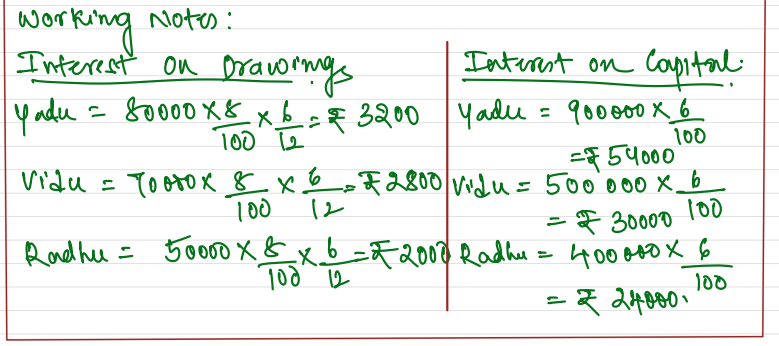 Working Notes:
Interest on Drawings
Yadu = 80000 × 8/100 × 6/12 = ₹ 3200
Vidu = 70000 × 8/100 × 6/12 = ₹ 2800
Radhu = 50000 × 8/100 × 6/12 = ₹ 2000
Interest on Capital:
Yadu = 900000 × 6/100
= ₹ 54000
Vidu = 500 000 × 6/100
= ₹ 30000
Radhu = 400000 × 6/100
= ₹ 24000.